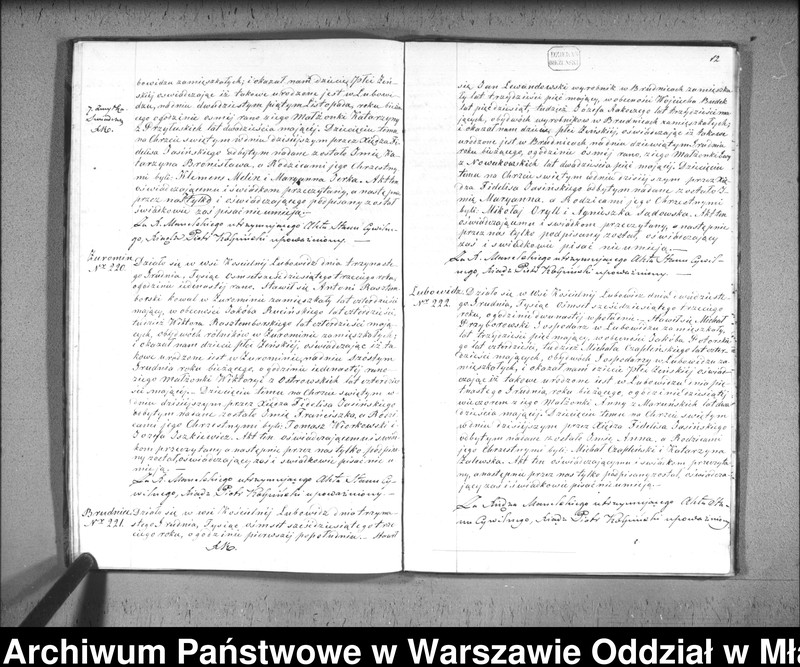 bowidzu zamieszkałych; i okazał nam dziecię płci Żeń-
skiej oświadczając iż takowe urodzone jest w Lubowi-
dzu, w dniu dwudziestym piątym Listopada, roku bieżą-
cego ogodzinie osmej rano z jego Małżonki Katarzyny
z Przyłuskich lat dwadzieścia mającej. Dziecięciu temu
na Chrzcie świętym w dniu dzisiejszym, przez Xiędza Fi-
delisa Jasińskiego odbytym nadane zostało Imię Ka-
tarzyna Bronisława, a Rodzicami jego Chrzestny-
mi byli Klemens Meliń i Maryanna Żerka. Akt ten
oświadczającemu i świadkom przeczytany, a następnie
przez nas tylko i oświadczającego podpisany został
świadkowie zaś pisać nie umieją.—
Za A. Mawelskiego utrzymującego Akta Stanu Cywilne-
go, Xiądz Piotr upoważniony.
Żuromin
Nr. 220.
Działo się w wsi Kościelnej Lubowidz dnia trzynaste-
go Grudnia, Tysiąc ośmset sześdziesiątego trzeciego roku,
ogodzinie iedenastej rano. Stawił się Antoni Rosztem-
borski kowal w Żurominie zamieszkały lat czterdzieści
mający, w obecności Jakóba Rucińskiego lat czterdzieści,
tudzież Wiktora Rosztemborskiego lat czterdzieści mają-
cych, obydwóch rolników w Żurominie zamieszkałych;
i okazał nam dziecię płci Żeńskiej, oświadczając iż ta-
kowe urodzone jest w Żurominie, na dniu szóstym
Grudnia roku bieżącego, o godzinie iedenastej rano
z jego małżonki Wiktoryi z Ostrowskich lat czterdzie-
ści mającej. Dziecięciu temu na Chrzcie świętym w
dniu dzisiejszym przez Xiędza Fidelisa Jasińskiego
odbytym nadane zostało Imię Franciszka, a Rodzi-
cami jego Chrzestnymi byli Tomasz Wiorkowski i
Józefa Iszkiewicz. Akt ten oświadczającemu i świad-
kom przeczytany a następnie przez nas tylko podpisa-
ny został, oświadczający zaś i świadkowie pisać nie u-
mieją.—
Za A. Mawelskiego utrzymującego Akta Stanu Cy-
wilnego, Xiądz Piotr upoważniony—
Brudnice
Nr. 221.
Działo się w wsi Kościelnej Lubowidz dnia trzyna-
stego Grudnia, Tysiąc ośmset sześćdziesiątego trze-
ciego roku, o godzinie pierwszej popołudniu.— Stawił
12
się Jan Lewandowski wyrobnik w Brudnicach zamieszka-
ły lat trzydzieści pięć mający, w obecności Wojciecha Budek
lat pięćdziesiąt, tudzież Józefa lat trzydzieści ma-
jących, obydwóch wyrobników w Brudnicach zamieszkałych;
i okazał nam dziecię płci Żeńskiej, oświadczając iż takowe
urodzone jest w Brudnicach na dniu dziewiątym Grudnia
roku bieżącego, ogodzinie osmej rano, z jego Małżonki Ewy
z Nowakowskich lat dwadzieścia pięć mającej. Dziecięciu
temu na Chrzcie Świętym w dniu dzisiejszym przez Xię-
dza Fidelisa Jasińskiego odbytym nadane zostało I-
mię Maryanna, a Rodzicami jego Chrzestnymi
byli Mikołaj Oryll i Agnieszka Sadowska. Akt ten
oświadczającemu i świadkom przeczytany, a następnie
przez nas tylko podpisany został, oświadczający
zaś i świadkowie pisać nie umieją.—
Za A. Mawelskiego utrzymującego Akta Stanu Cywil-
nego, Xiądz Piotr upoważniony.—
Lubowidz
Nr. 222.
Działo się w wsi Kościelnej Lubowidz dnia dwudzieste-
go Grudnia, Tysiąc ośmset sześćdziesiątego trzeciego
roku, ogodzinie dwunastej w południe. Stawił się Michał
Przyborowski Gospodarz w Lubowidzu zamieszkały,
lat trzydzieści pięć mający, w obecności Jakóba
lat czterdzieści, tudzież Michała Czaplińskiego lat czter-
dzieści mających, obydwóch Gospodarzy w Lubowidzu za-
mieszkałych, i okazał nam dziecię płci Żeńskiej oświad-
czając iż takowe urodzone jest w Lubowidzu dnia pię-
tnastego Grudnia roku bieżącego, ogodzinie dziesiątej
wieczorem z jego Małżonki Anny z Marońskich lat dwa-
dzieścia mającej. Dziecięciu temu na Chrzcie świętym
w dniu dzisiejszym przez Xiędza Fidelisa Jasińskiego
odbytym nadane zostało Imię Anna, a Rodzicami
jego Chrzestnymi byli Michał Czapliński i Katarzyna
Zulewska. Akt ten oświadczającemu i świadkom przeczyta-
ny, a następnie przez nas tylko podpisany został, oświadcza-
jący zaś i świadkowie pisać nie umieją.—
Za Xiędza Mawelskiego utrzymującego Akta Sta-
nu Cywilnego, Xiądz Piotr upoważniony
Archiwum Państwowe w Warszawie Oddział w Mła